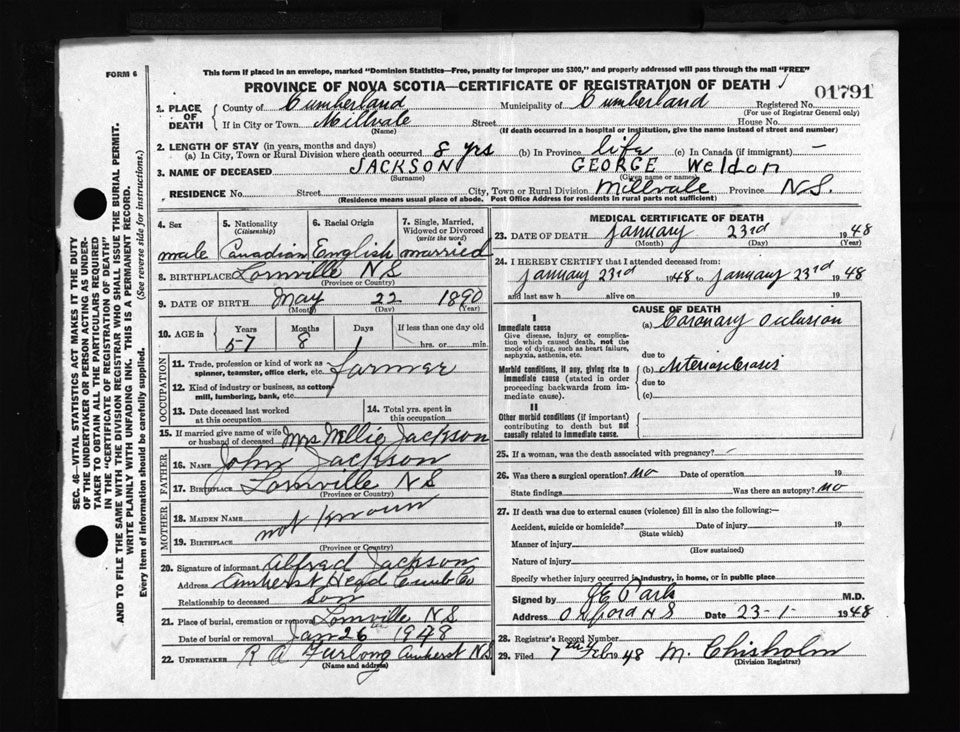 FORM 6
This form if placed in an envelope, marked "Dominion Statistics—Free, penalty for improper use $300," and properly addressed will pass through the mail "FREE"
PROVINCE OF NOVA SCOTIA—CERTIFICATE OF REGISTRATION OF DEATH
01791
1. PLACE OF DEATH County of Cumberland Municipality of Cumberland Registered No.
(For use of Registrar General only)
If in City or Town Millvale Street House No.
(Name) (If death occurred in a hospital or institution, give the name instead of street and number)
2. LENGTH OF STAY (in years, months and days)
(a) In City, Town or Rural Division where death occurred 8 yrs (b) In Province life (c) In Canada (if immigrant) —
3. NAME OF DECEASED JACKSON GEORGE Weldon
(Surname) (Given name or names)
RESIDENCE No. Street City, Town or Rural Division Millvale Province N.S.
(Residence means usual place of abode. Post Office Address for residents in rural parts not sufficient)
4. Sex 5. Nationality (Citizenship) 6. Racial Origin 7. Single, Married, Widowed or Divorced (write the word)
male Canadian English married
8. BIRTHPLACE Lornville N S
(Province or Country)
9. DATE OF BIRTH May 22 1890
(Month) (Day) (Year)
10. AGE in Years Months Days If less than one day old
57 8 1 hrs. or min.
OCCUPATION
11. Trade, profession or kind of work as spinner, teamster, office clerk, etc. farmer
12. Kind of industry or business, as cotton-mill, lumbering, bank, etc.
13. Date deceased last worked at this occupation
14. Total yrs. spent in this occupation
15. If married give name of wife or husband of deceased Mrs Nellie Jackson
FATHER
16. NAME John Jackson
17. BIRTHPLACE Lornville N S
(Province or Country)
MOTHER
18. MAIDEN NAME not known
19. BIRTHPLACE
(Province or Country)
20. Signature of informant Alfred Jackson
Address Amherst Head Cumb Co
Relationship to deceased Son
21. Place of burial, cremation or removal Lornville N S
Date of burial or removal Jan 26th 1948
22. UNDERTAKER R A Furlong Amherst N.S
(Name and address)
MEDICAL CERTIFICATE OF DEATH
23. DATE OF DEATH January 23rd 1948
(Month) (Day) (Year)
24. I HEREBY CERTIFY that I attended deceased from:
January 23rd 1948 to January 23rd 1948
and last saw h alive on 19
CAUSE OF DEATH
I
Immediate cause (a) Coronary Occlusion
Give disease, injury or complication which caused death, not the mode of dying, such as heart failure, asphyxia, asthenia, etc.
due to
Morbid conditions, if any, giving rise to immediate cause (stated in order proceeding backwards from immediate cause).
(b)
due to
(c)
II
Other morbid conditions (if important) contributing to death but not causally related to immediate cause.
25. If a woman, was the death associated with pregnancy? -
26. Was there a surgical operation? no Date of operation 19
State findings Was there an autopsy? no
27. If death was due to external causes (violence) fill in also the following:—
Accident, suicide or homicide? Date of injury 19
(State which)
Manner of injury
(How sustained)
Nature of injury
Specify whether injury occurred in industry, in home, or in public place
Signed by M.D.
Address Oxford N S Date 23-1- 1948
28. Registrar's Record Number
29. Filed 7th Feb 1948 M. Chisholm
(Division Registrar)
SEC. 46—VITAL STATISTICS ACT MAKES IT THE DUTY
OF THE UNDERTAKER OR PERSON ACTING AS UNDER-
TAKER TO OBTAIN ALL THE PARTICULARS REQUIRED
IN THE "CERTIFICATE OF REGISTRATION OF DEATH"
AND TO FILE THE SAME WITH THE DIVISION REGISTRAR WHO SHALL ISSUE THE BURIAL PERMIT.
WRITE PLAINLY WITH UNFADING INK. THIS IS A PERMANENT RECORD.
Every item of information should be carefully supplied. (See reverse side for instructions.)